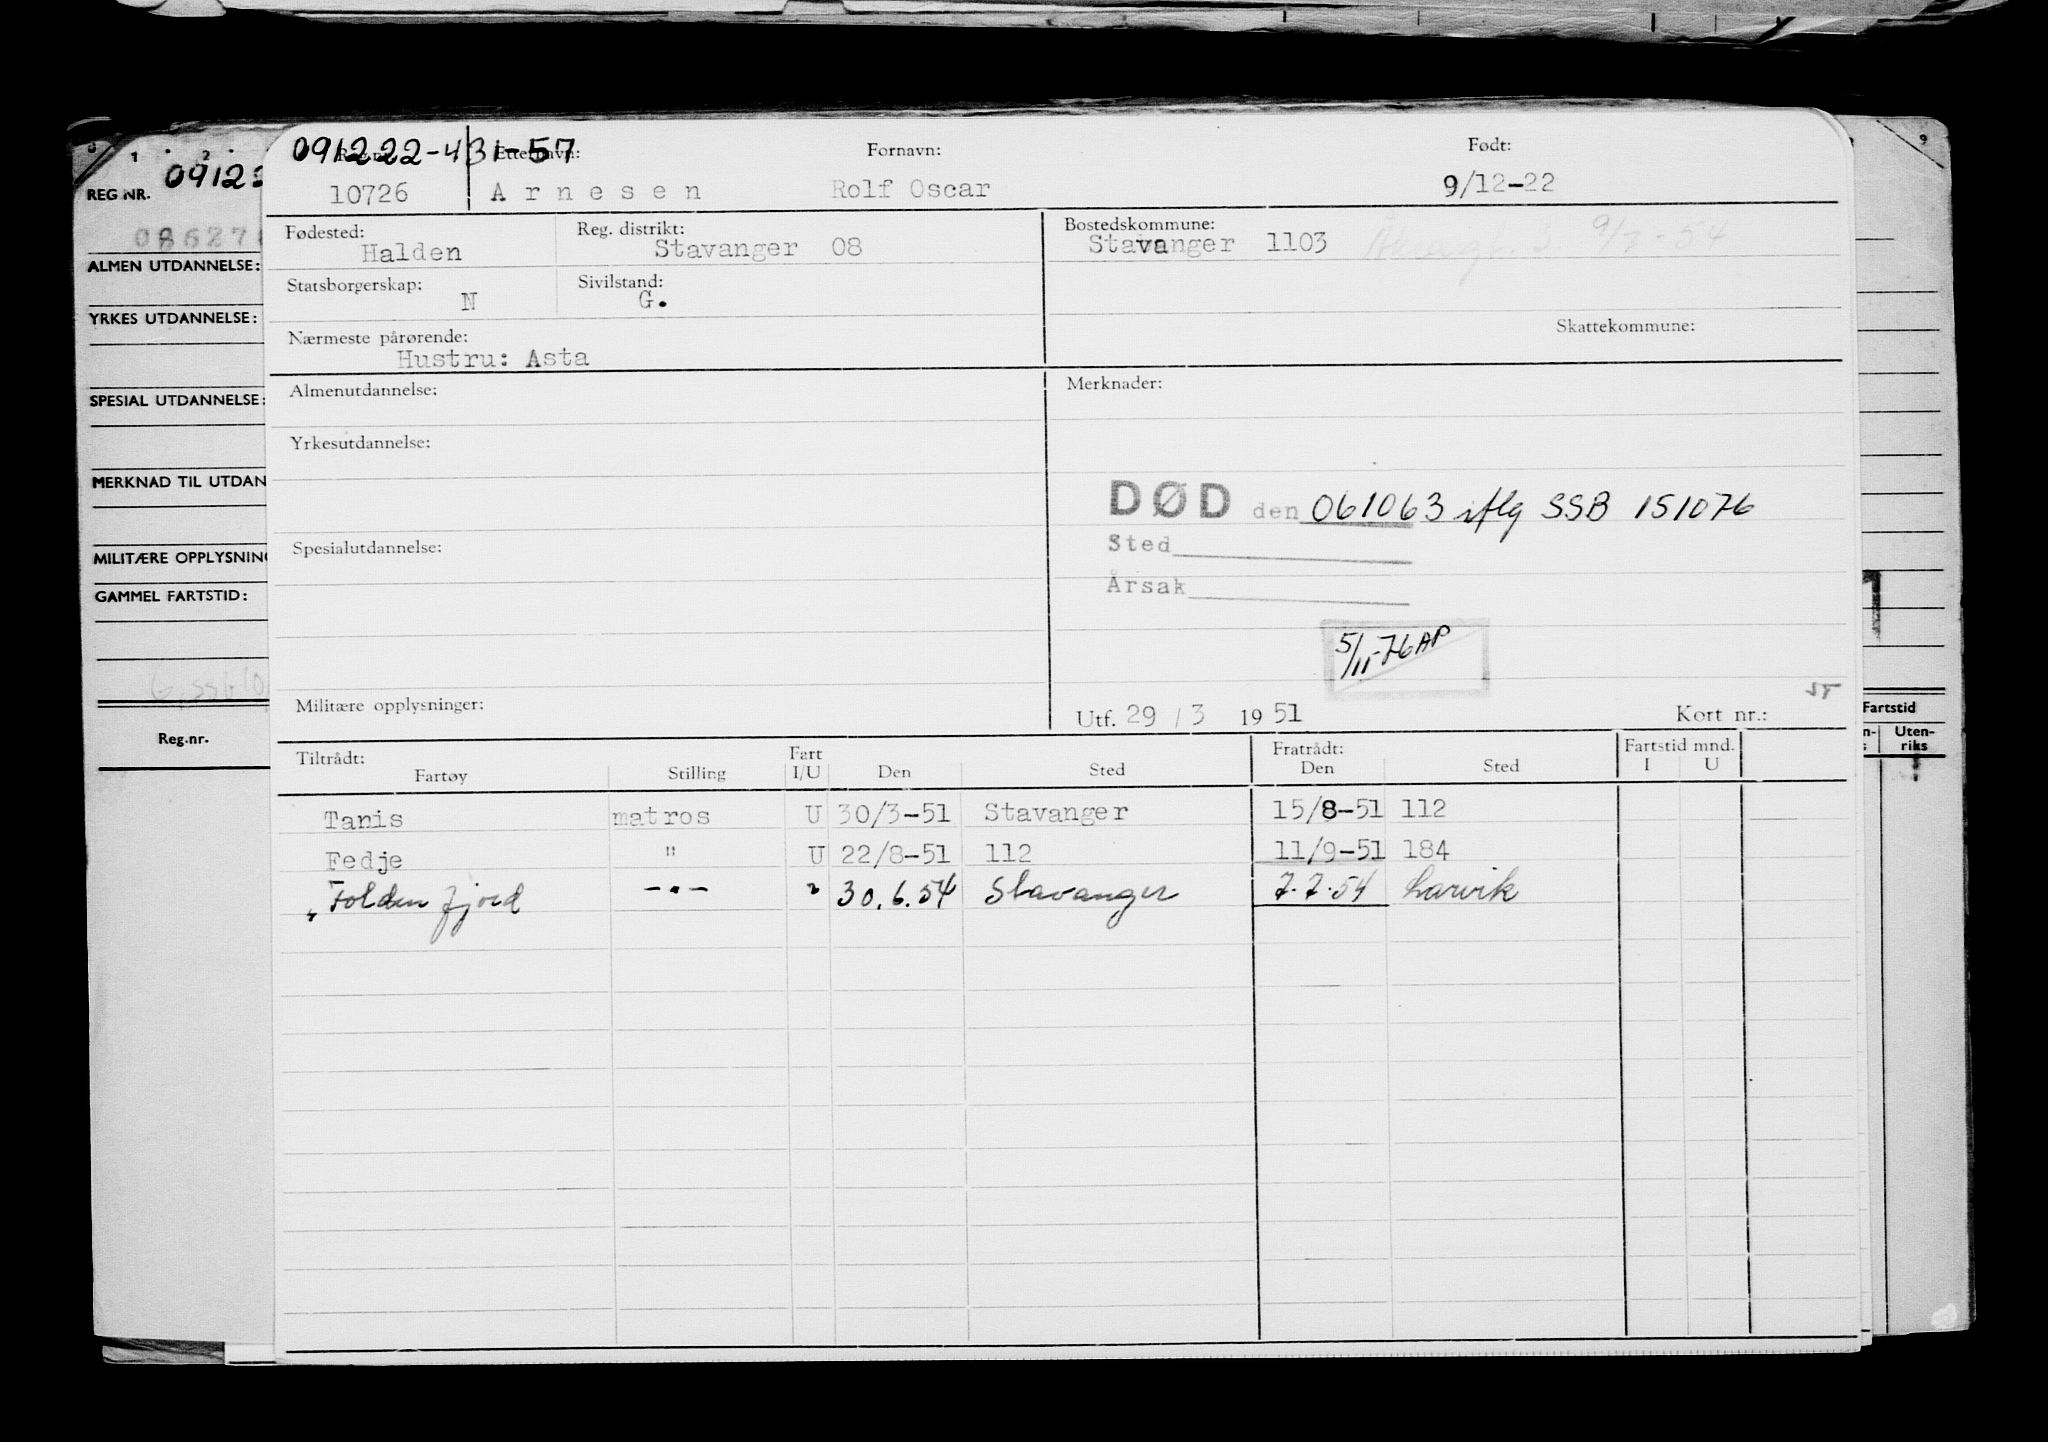 091222-431-57
Reg.nr. Etternavn: Fornavn: Født:
10726 Arnesen Rolf Oscar 9/12-22
Fødested: Reg. distrikt: Bostedskommune:
Halden Stavanger 08 Stavanger 1103 9/7-54
Statsborgerskap: Sivilstand:
N G.
Skattekommune:
Nærmeste pårørende:
Hustru: Asta
Almenutdannelse: Merknader:
Yrkesutdannelse:
DØD den 061063 iflg SSB 151076
Spesialutdannelse: Sted
Årsak
5/11-76 AP
Militære opplysninger: Utf. 29/3 1951 Kort nr.:
Tiltrådt: Fart Fratrådt: Fartstid mnd.
Fartøy Stilling I/U Den Sted Den Sted I U
Tanis matros U 30/3-51 Stavanger 15/8-51 112
Fedje " U 22/8-51 112 11/9-51 184
" Folden fjord -"- " 30.6.54 Stavanger 7.7.54 Larvik
1 2
REG NR. 0912
08627
ALMEN UTDANNELSE:
YRKES UTDANNELSE:
SPESIAL UTDANNELSE:
MERKNAD TIL UTDAN
MILITÆRE OPPLYSNING
GAMMEL FARTSTID:
Reg.nr.
9
Fartstid
Uten-
riks